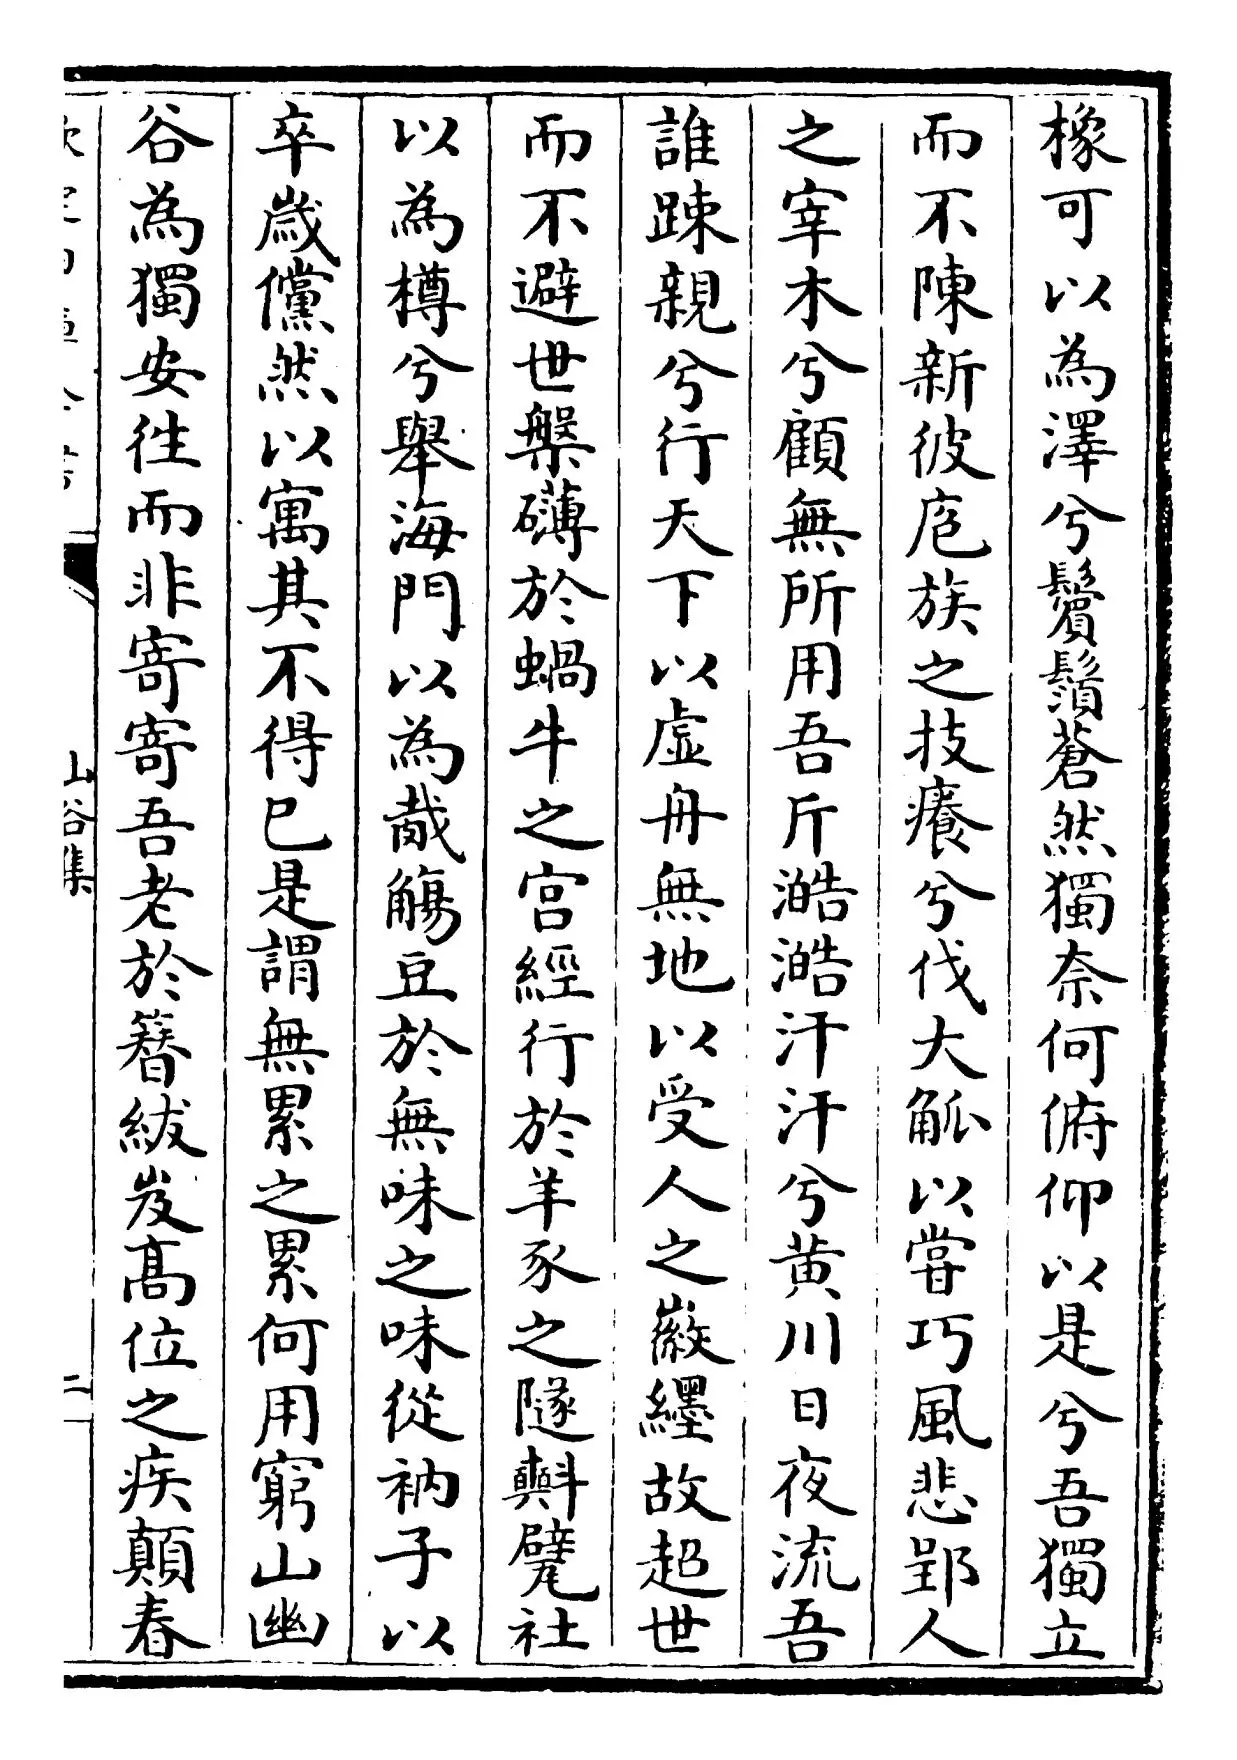 橡可以為澤兮鬢鬚蒼然獨奈何俯仰以是兮吾獨立
而不陳新彼庖族之技癢兮伐大觚以嘗巧風悲郢人
之宰木兮顧無所用吾斤澔澔汗汗兮黃川日夜流吾
誰踈親兮行天下以虛舟無地以受人之徽纆故超世
而不避世槃礴於蝸牛之宫經行於羊豕之隧斞甓社
以為樽兮舉海門以為胾觴豆於無味之味從衲子以
卒歲儻然以寓其不得已是謂無累之累何用窮山幽
谷為獨安徃而非寄寄吾老於簪紱岌髙位之疾顛春
山谷集
二